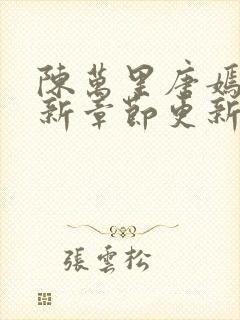 陳萬里唐嫣
新章節更新
張雲松